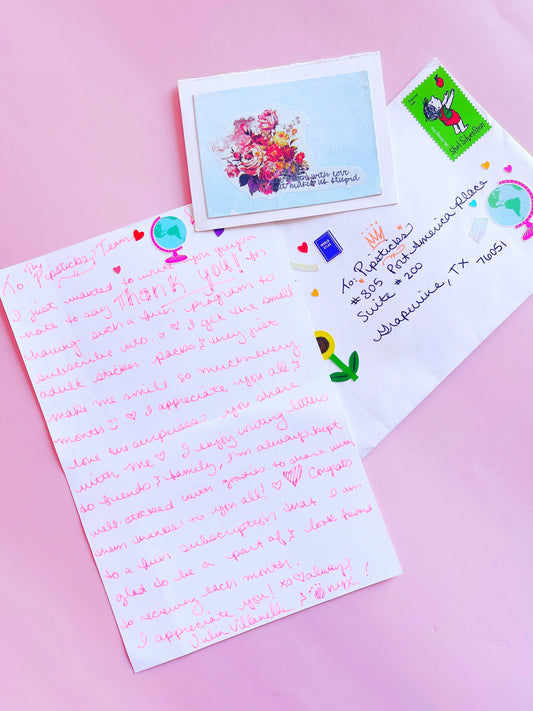 To: The Pipsticks Team
I just wanted to write you guys a
note to say Thank you! for
having such a fun program to
subscribe into. I get the small
adult sticker packs & they just
make me smile so much every
month I appreciate you all &
love the surprises you share
with me I enjoy writing letters
to friends & family, I'm always kept
well-stocked with goodies to share with
them thanks to you all! Congrats
to a fun subscription that I am
glad to be a part of & look forward
to receiving each month.
I appreciate you! xo always
Julia Villanella & Onyx!
with love
it makes us stupid
Shel Silverstein
To: Pipsticks
#805 Port America Place
Suite #200
Grapevine, TX 76051